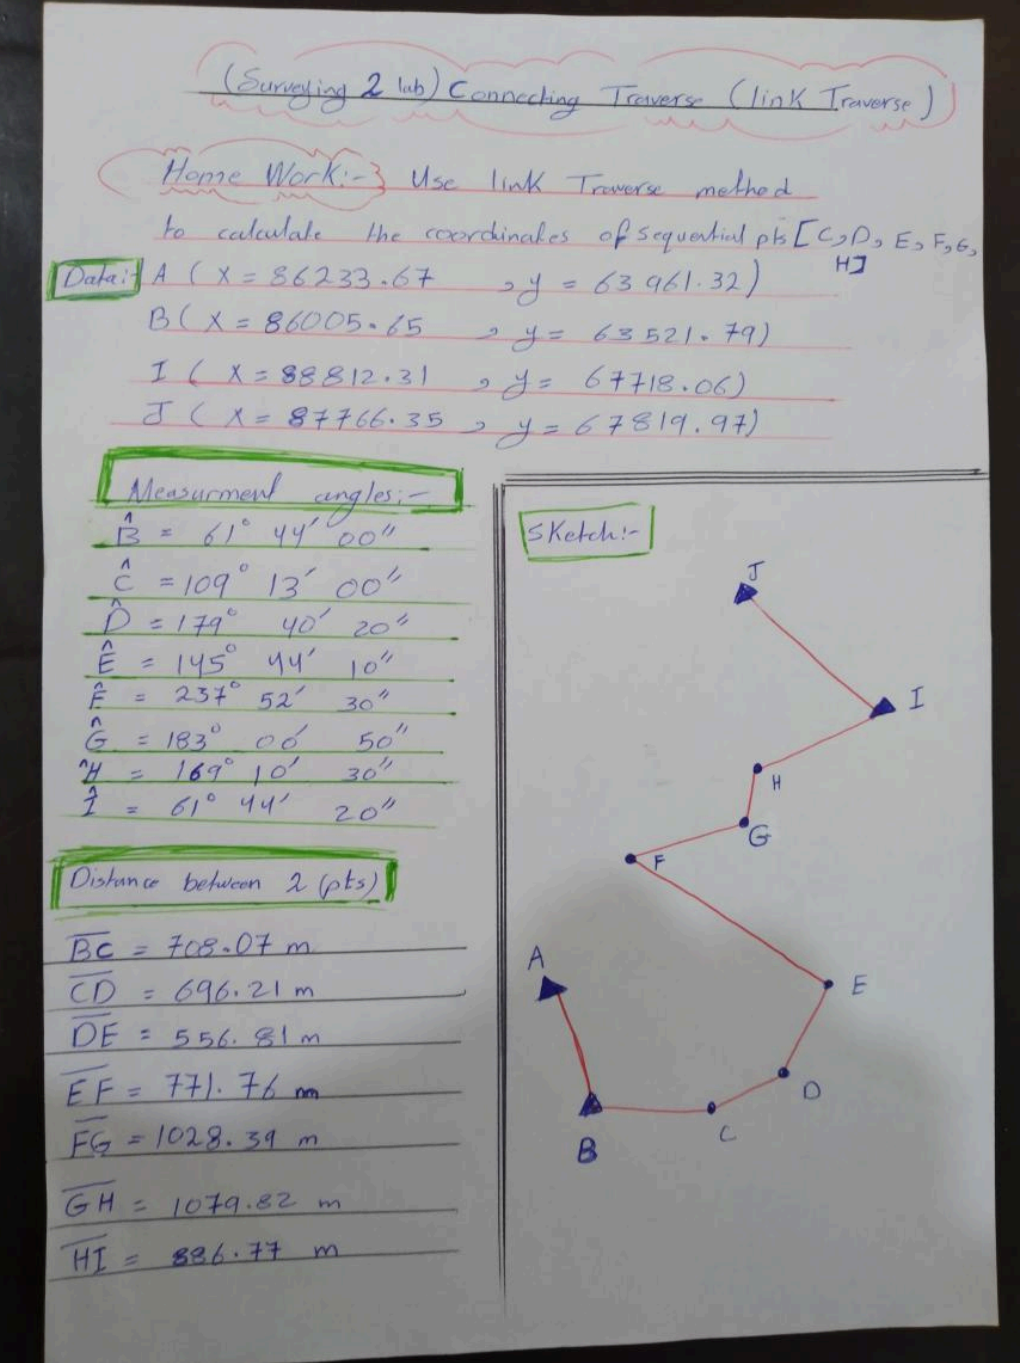 (Surveying 2 lab) Connecting Traverse (link Traverse)
Home Work:- Use link Traverse method
to calculate the coordinates of sequential pts [C, D, E, F, G,
H]
Data:- A ( X = 86233.67 , y = 63961.32)
B( X = 86005.65 , y = 63521.79)
I ( X = 88812.31 , y = 67718.06)
J ( X = 87766.35 , y = 67819.97)
Measurment angles:-
B̂ = 61° 44′ 00″
Ĉ = 109° 13′ 00″
D̂ = 179° 40′ 20″
Ê = 145° 44′ 10″
F̂ = 237° 52′ 30″
Ĝ = 183° 00′ 50″
Ĥ = 169° 10′ 30″
Î = 61° 44′ 20″
Distance between 2 (pts)
BC = 708.07 m
CD = 696.21 m
DE = 556.81 m
EF = 771.76 m
FG = 1028.39 m
GH = 1079.82 m
HI = 886.77 m
Sketch:-
J
I
H
G
F
A
E
D
C
B